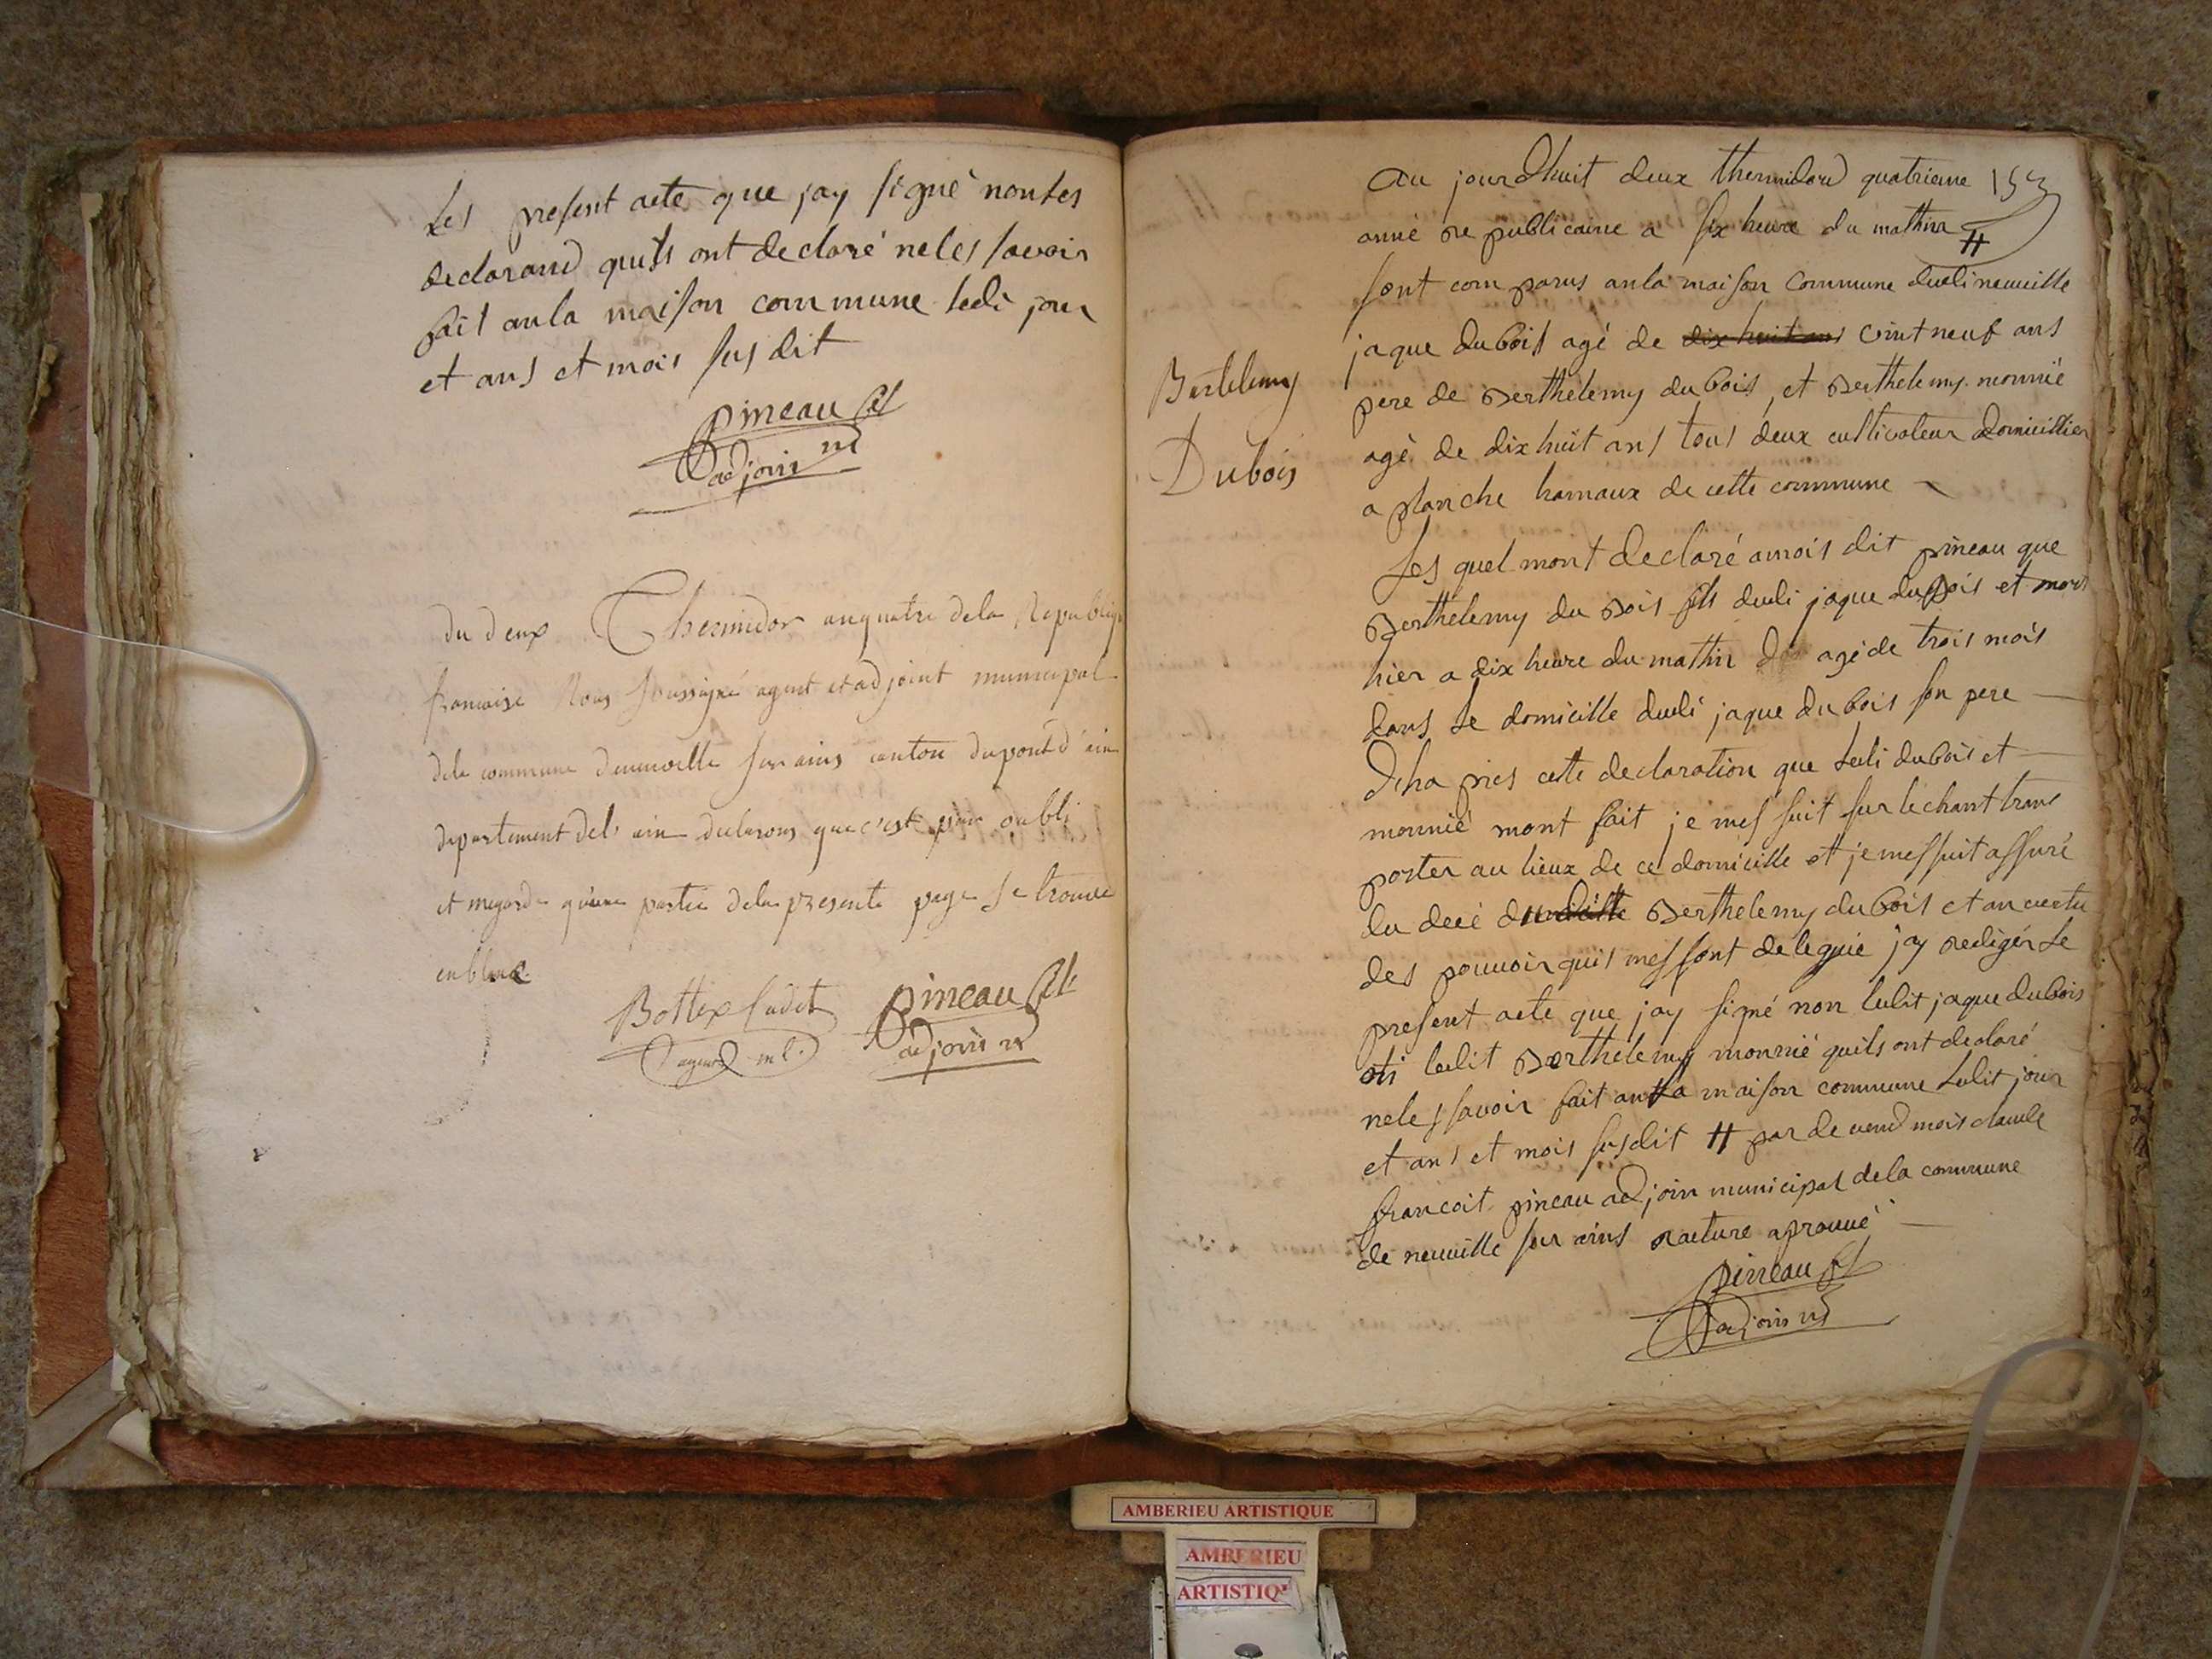 Les present acte que jay signé nonles
declarand quils ont declaré neles savoir
fait anla maison commune ledi jour
et ans et mois susdit
pineau fils
adjoin ml
du deux Thermidor anquatre dela Republique
francaise Nous soussigné agent et adjoint municipal
dela commune deneuville sur ains canton du pont d'ain
departement del'ain declarons que c'est par oubli
et megarde qu'une partie dela presente page se trouve
en blanc
Bottex Cadet pineau fils
agend ml. adjoin ml
Bertelemy
Dubois
153
Au jourdhuit deux thermidord quatrieme
anné republicaine a six heure du mathin #
sont comparus anla maison commune dudi neuville
jaque dubois agé de dix huit ans vint neuf ans
pere de Berthelemy dubois, et Berthelemy monnié
agé de dix huit ans tous deux cultivateur domicillier
a planche hamaux de cette commune
Les quel mont declaré amois dit pineau que
Berthelemy du Bois fils dudi jaque du Bois et mort
hier a dix heure du mathin agé de trois mois
dans le domicille dudi jaque dubois son pere
Deha pres cette declaration que ledi dubois et
monnié mont fait je mes suit sur lechant trans
porter au lieux de ce domicille et je mes suit assuré
du decé Berthelemy dubois et an vertu
des pouvoir quis mes sont deleguié jay rediger le
present acte que jay signé non ledit jaque dubois
ni ledit Berthelemy monnié quils ont declaré
neles savoir fait anla maison commune ledit jour
et ans et mois susdit # par de vend mois claude
francoit pineau adjoin municipal dela commune
de neuville sur ains rature aprouvé
pineau fils
adjoin ml
AMBERIEU ARTISTIQUE
AMBERIEU
ARTISTIQ